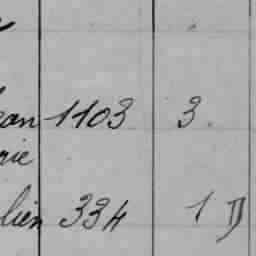 ean 1103 3.
rie
lien 334 1 D